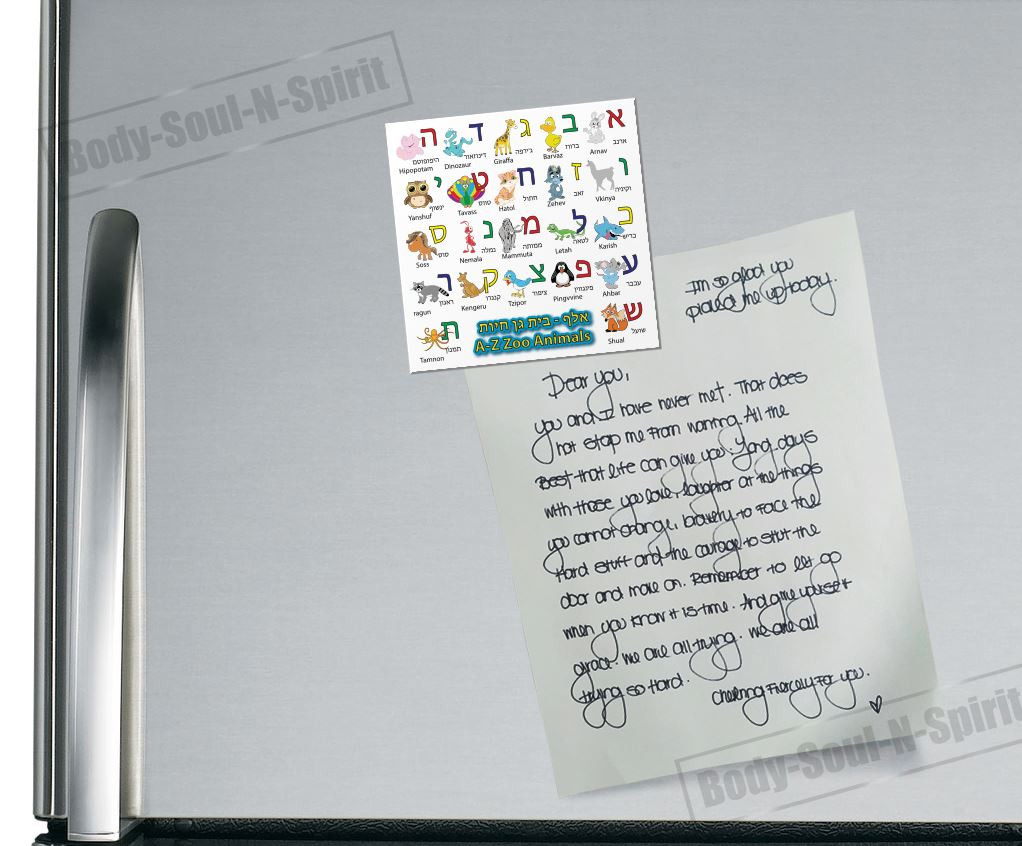 Body-Soul-N-Spirit
א ב ג ד ה
ארנב ברווז ג'ירפה דינוזאור היפופוטם
Hipopotam Dinozaur Giraffa Barvaz Arnav
ו ז ח ט י
זאב חתול טווס ינשוף
Yanshuf Tavass Hatol Zehev Vkinya
כ ל מ נ ס
כריש לטאה ממותה נמלה סוס
Soss Nemala Mammuta Letah Karish
ע פ צ ק ר
עכבר פינגווין ציפור קנגרו ראגון
ragun Kengeru Tzipor Pingvvine Ahbar
ש ת
שועל תמנון
Tamnon Shual
אלף - בית גן חיות
A-Z Zoo Animals
I'm so glad you
picked me up today.
Dear you,
you and I have never met. That does
not stop me from wanting. All the
Best that life can give you. Long days
with those you love, laughter at the things
you cannot change, bravery to face the
Hard stuff and the courage to shut the
door and move on. Remember to let go
when you know it is time. And give yourself
grace. we are all trying. we are all
trying so Hard.
cheering Fiercely For you.
Body-Soul-N-Spirit